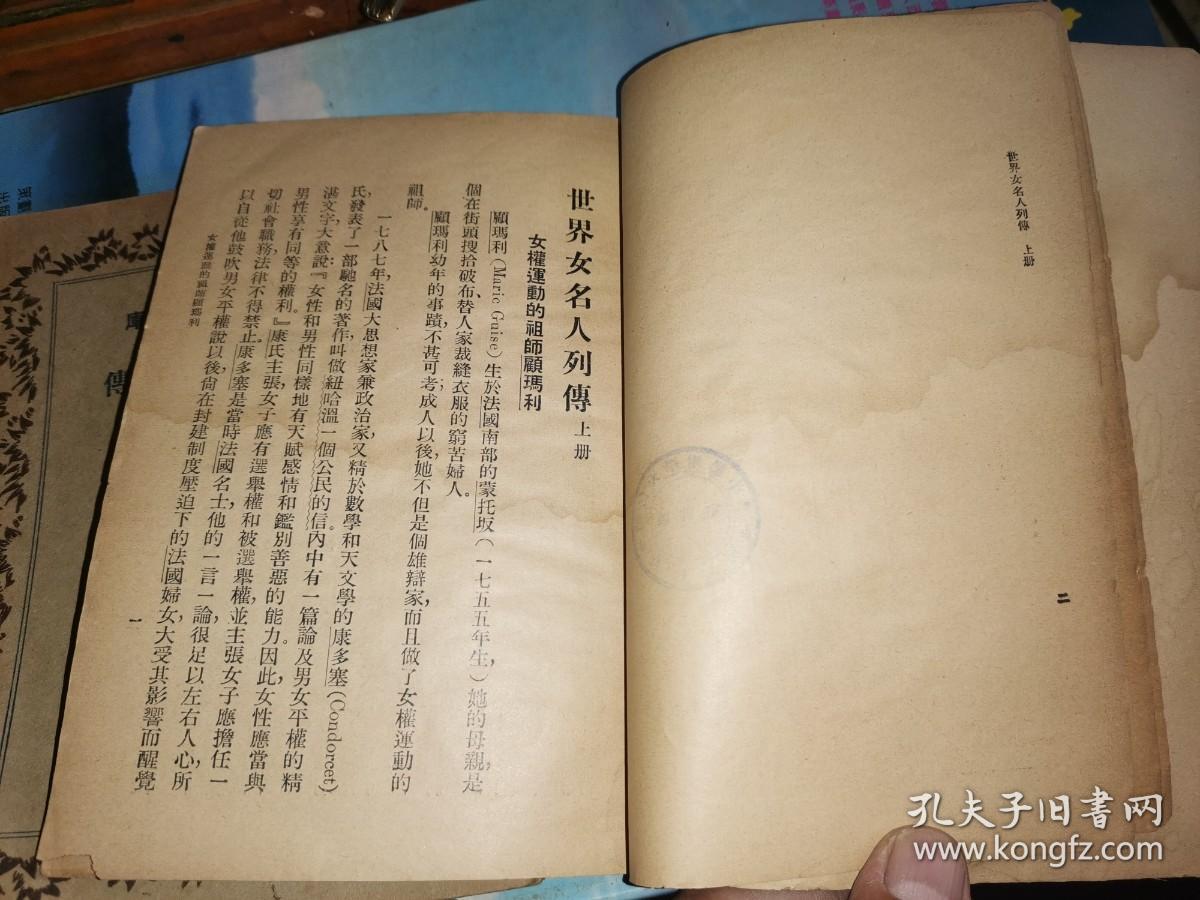 世界女名人列傳 上册
二
世界女名人列傳 上册
女權運動的祖師顧瑪利
顧瑪利(Marie Guise)生於法國南部的蒙托坂(一七五五年生)，她的母親，是
個在街頭搜拾破布、替人家裁縫衣服的窮苦婦人。
顧瑪利幼年的事蹟，不甚可考；成人以後，她不但是個雄辯家，而且做了女權運動的
祖師。
一七八七年，法國大思想家兼政治家，又精於數學和天文學的康多塞(Condorcet)
氏，發表了一部馳名的著作，叫做紐哈溫一個公民的信。內中有一篇論及男女平權的精
湛文字，大意說：『女性和男性同樣地有天賦感情和鑑別善惡的能力。因此，女性應當與
男性享有同等的權利。』康氏主張女子應有選舉權和被選舉權，並主張女子應擔任一
切社會職務，法律不得禁止。康多塞是當時法國名士，他的一言一論，很足以左右人心，所
以自從他鼓吹男女平權說以後，尙在封建制度壓迫下的法國婦女，大受其影響而醒覺
女權運動的祖師顧瑪利
一
傳
孔夫子旧书网
www.kongfz.com